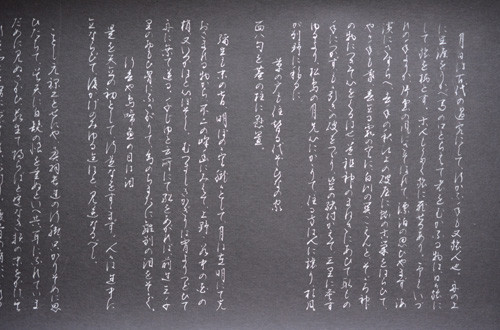 月日は百代の過客にして行かふ年も又旅人也舟の上
に生涯をうかへ馬の口とらえて老をむかふる物は日々旅に
して旅を栖とす古人も多く旅に死せるあり予もいつれ
の年よりか片雲の風にさそはれて漂泊の思ひやます海
濱にさすらへ去年の秋江上の破屋に蜘の古巣をはらひて
やゝ年も暮春立る霞の空に白川の関こえんとそゝろ神
の物につきて心をくるはせ道祖神のまねきにあひて取もの
手につかすもゝ引の破をつゝり笠の緒付かえて三里に灸す
ゆるより松島の月先心にかゝりて住る方は人に譲り杉風
か別墅に移るに
草の戸も住替る代そひなの家
面八句を庵の柱に懸置
弥生も末の七日明ほのゝ空朧々として月は在明にて光
おさまれる物から不二の峰幽にみえて上野谷中の花の
梢又いつかはと心ほそしむつましきかきりは宵よりつとひて
舟に乗て送る千しゆと云所にて船をあかれは前途三千
里のおもひ胸にふさかりて幻のちまたに離別の泪をそゝく
行春や鳥啼魚の目は泪
是を矢立の初として行道なをすゝます人々は途中に
立ならひて後かけのみゆる迄はと見送なるへし
ことし元禄二とせにや奥羽長途の行脚只かりそめに思
ひたちて呉天に白髪の恨を重ぬといへ共耳にふれていま
ために見ぬさかひ若生て帰らはと定なき頼の末を